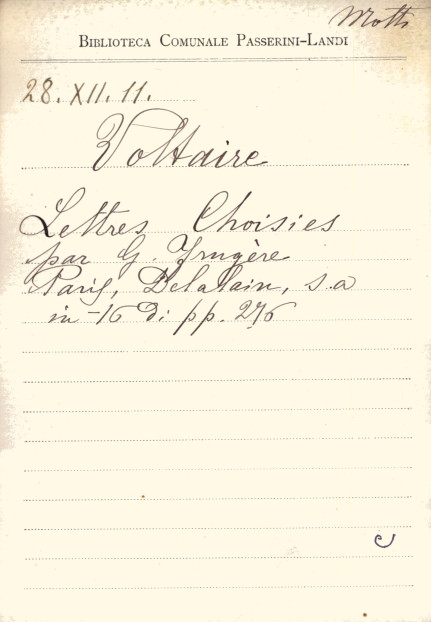 Motti
BIBLIOTECA COMUNALE PASSERINI-LANDI
28. XII. 11.
Voltaire
Lettres Choisies
par G. Frugère
Paris, Delalain, s.a
in-16 di pp. 276